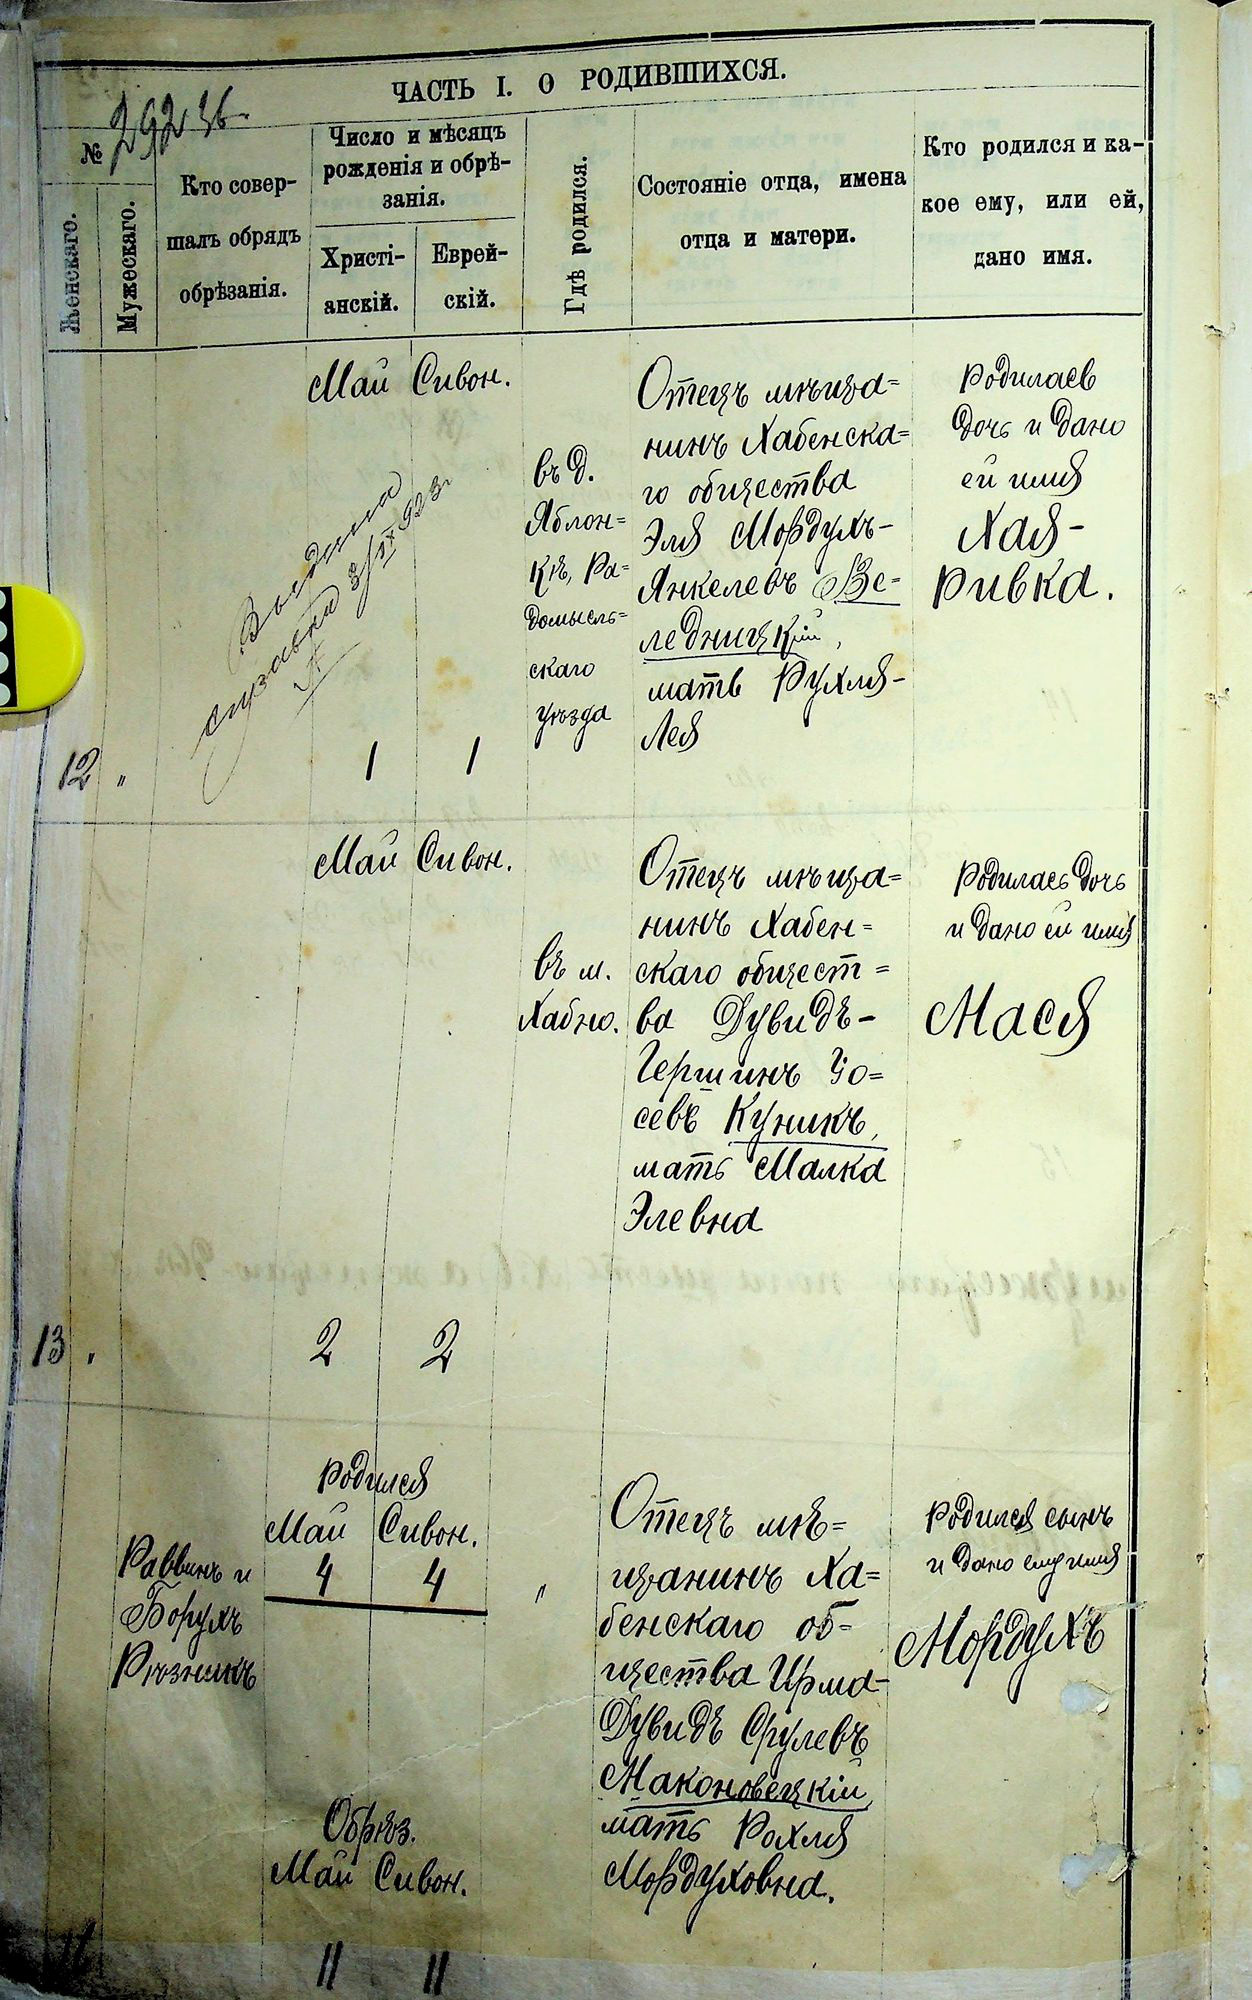 ЧАСТЬ I. О РОДИВШИХСЯ.
29236.
№
Женскаго.
Мужескаго.
Кто совер-
шалъ обрядъ
обрѣзанія.
Число и мѣсяцъ
рожденія и обрѣ-
занія.
Христі-
анскій.
Еврей-
скій.
Гдѣ родился.
Состояніе отца, имена
отца и матери.
Кто родился и ка-
кое ему, или ей,
дано имя.
12
"
Выдана
справка 3/IX 923 г
Май
1
Сивон.
1
въ д.
Яблон=
кѣ, Ра=
домысль=
скаго
уѣзда
Отецъ мѣща=
нинъ Хабенска=
го общества
Эля Мордухъ-
Янкелевъ Ве=
ледницкій,
мать Рухля-
Лея
Родилась
дочь и дано
ей имя
Хая-
Ривка.
13
"
Май
2
Сивон.
2
въ м.
Хабно.
Отецъ мѣща=
нинъ Хабен=
скаго общест=
ва Дувидъ-
Гершинъ Іо=
севъ Куникъ,
мать Малка
Элевна
Родилась дочь
и дано ей имя
Мася
11
Раввинъ и
Борухъ
Рѣзникъ
Родился
Май Сивон.
4 4
Обрѣз.
Май Сивон.
11 11
"
Отецъ мѣ=
щанинъ Ха=
бенскаго об=
щества Ирма-
Дувидъ Срулевъ
Маконовецкій,
мать Рохля
Мордуховна.
Родился сынъ
и дано ему имя
Мордухъ